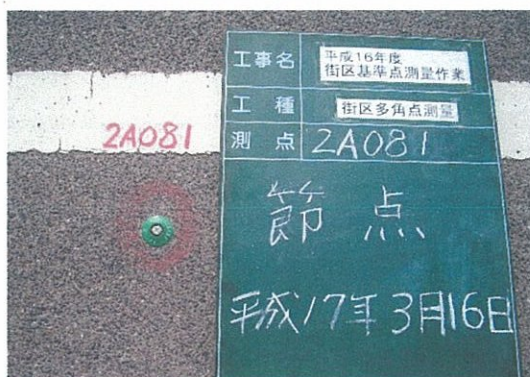 2A081
工事名 平成16年度
街区基準点測量作業
工種 街区多角点測量
測点 2A081
節点
平成17年3月16日